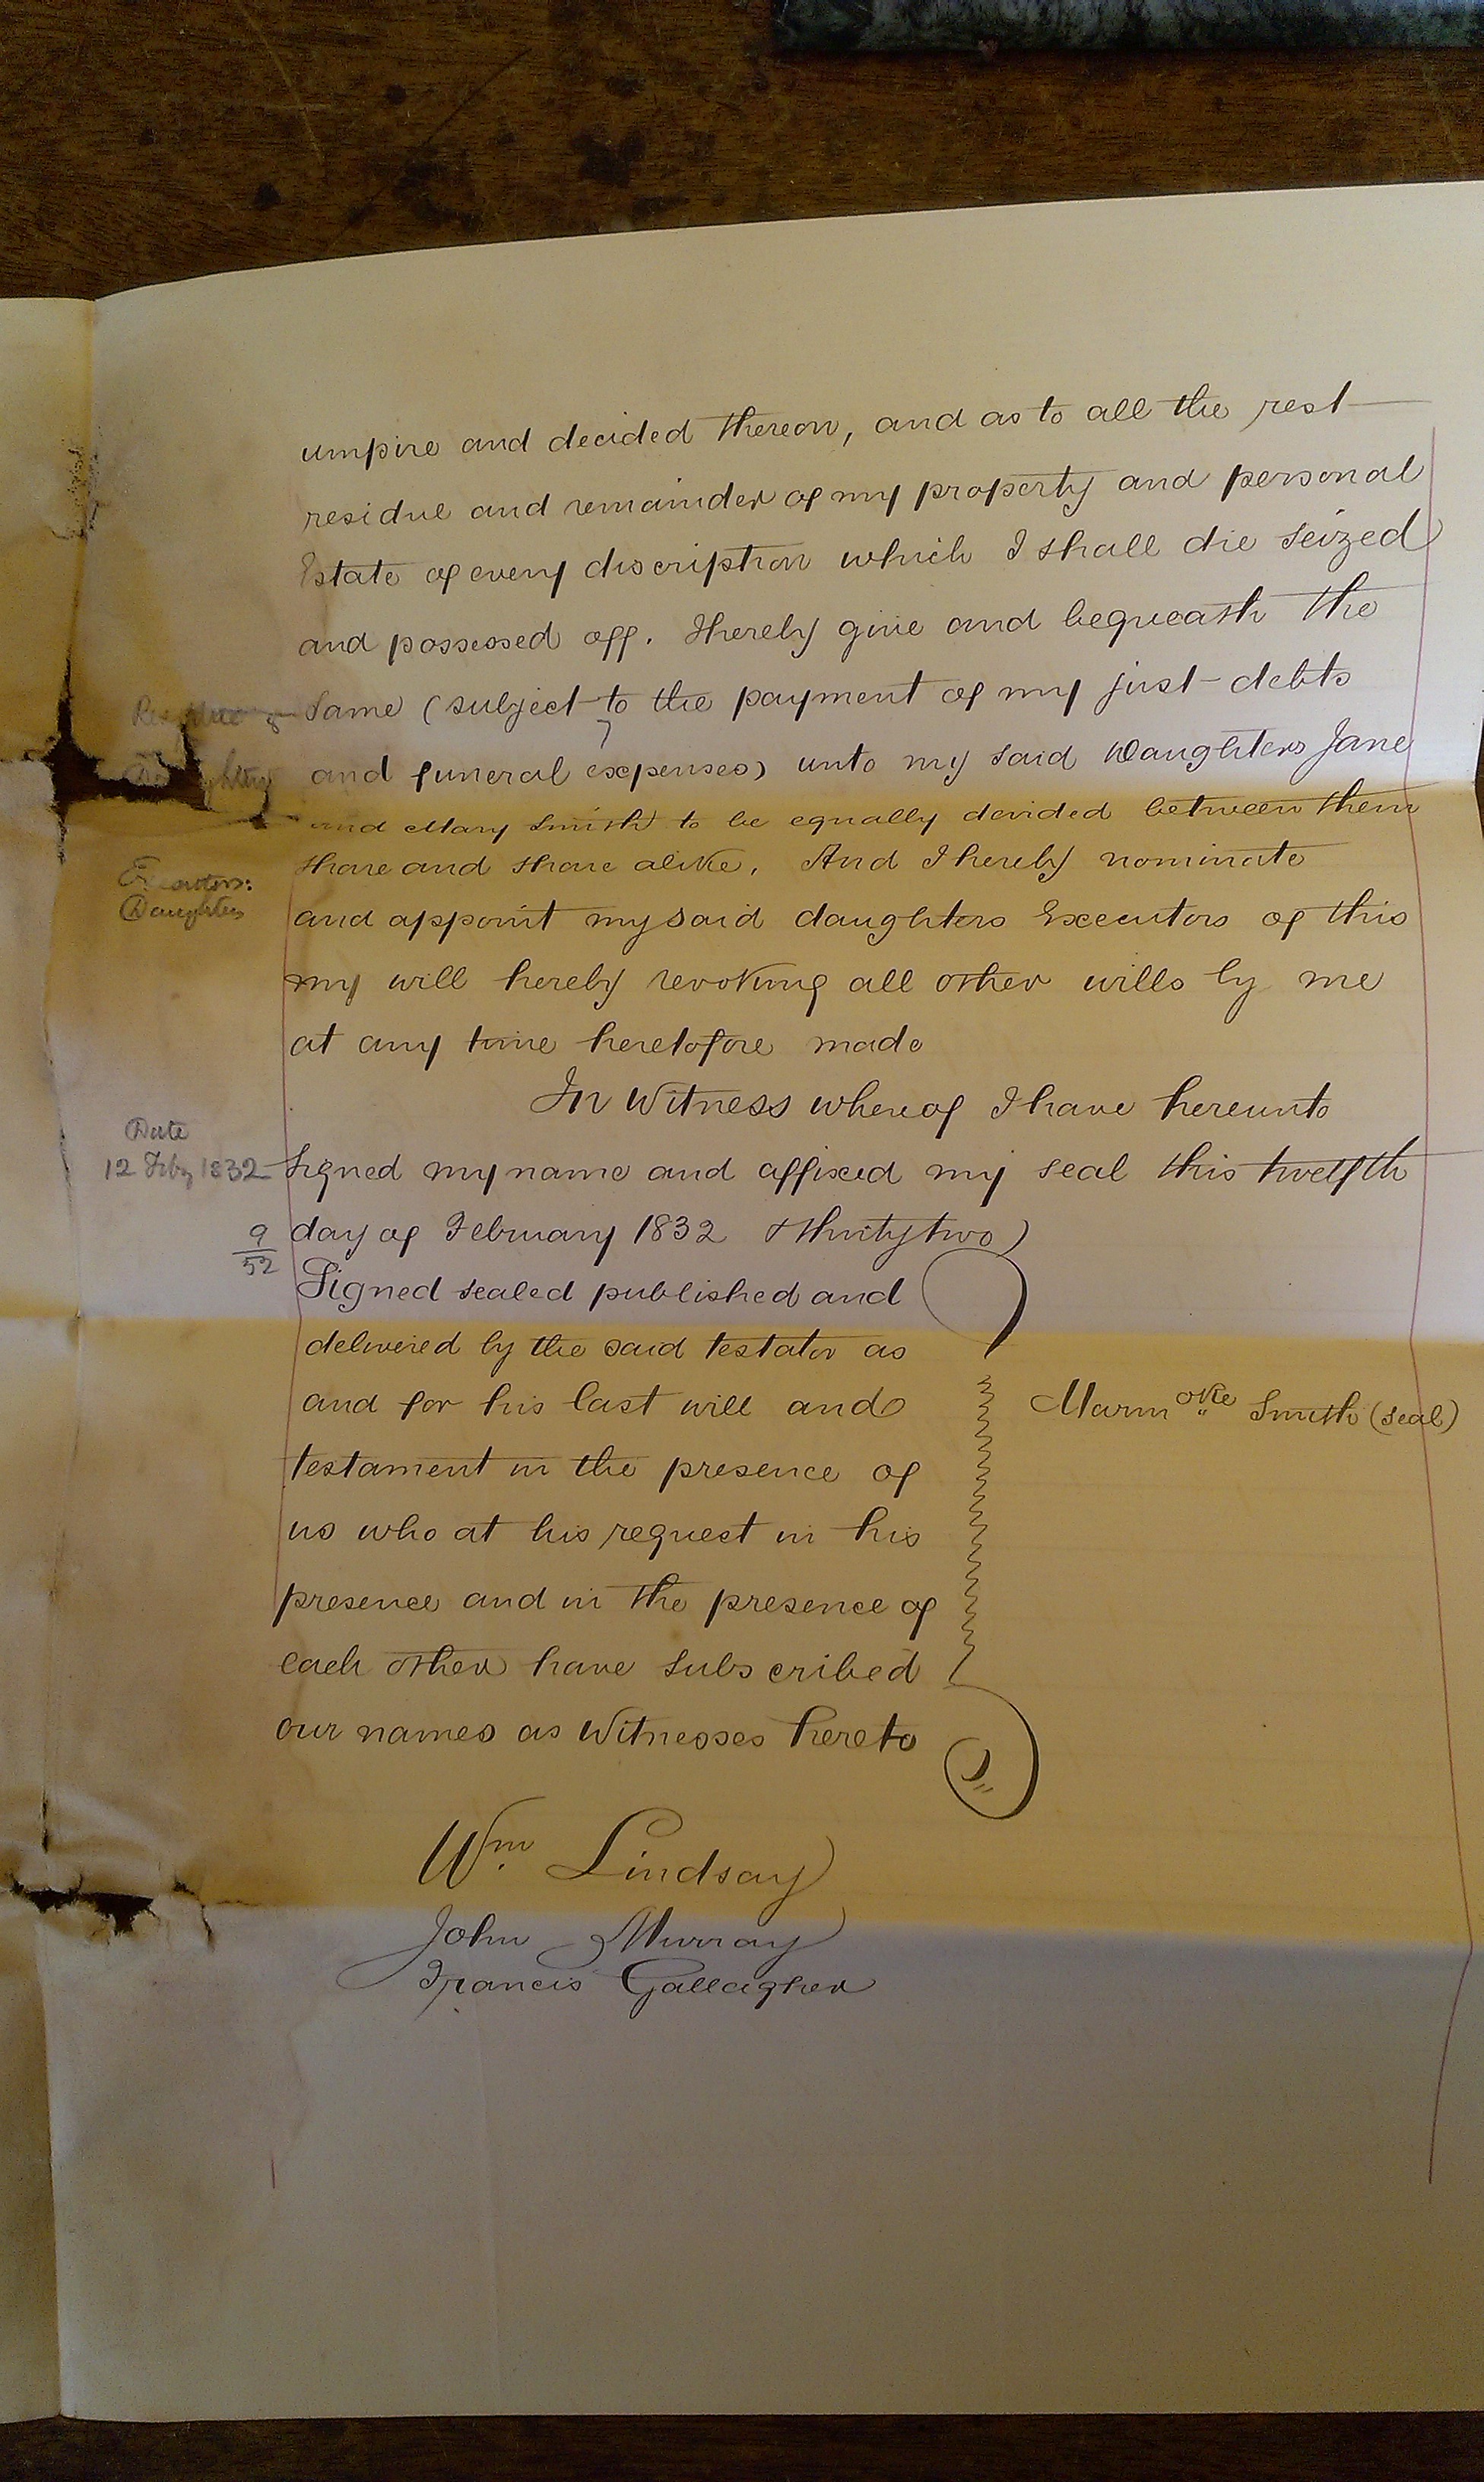 umpire and decided thereon, and as to all the rest
residue and remainder of my property and personal
Estate of every discription which I shall die seized
and possessed off. I hereby give and bequeath the
Residue
same (subject to the payment of my just debts
and funeral expenses) unto my said Daughters Jane
and Mary Smith to be equally devided between them
share and share alike. And I hereby nominate
Executors:
Daughters
and appoint my said daughters Executors of this
my will hereby revoking all other wills by me
at any time heretofore made
In Witness whereof I have hereunto
Date
12 Feby 1832
signed my name and affixed my seal this twelfth
day of February 1832 thirty two)
9
52
Signed sealed published and
delivered by the said testator as
and for his last will and
Marmoke Smith (seal)
testament in the presence of
us who at his request in his
presence and in the presence of
each other have subscribed
our names as Witnesses hereto
Wm. Lindsay
John Murray
Francis Gallagher